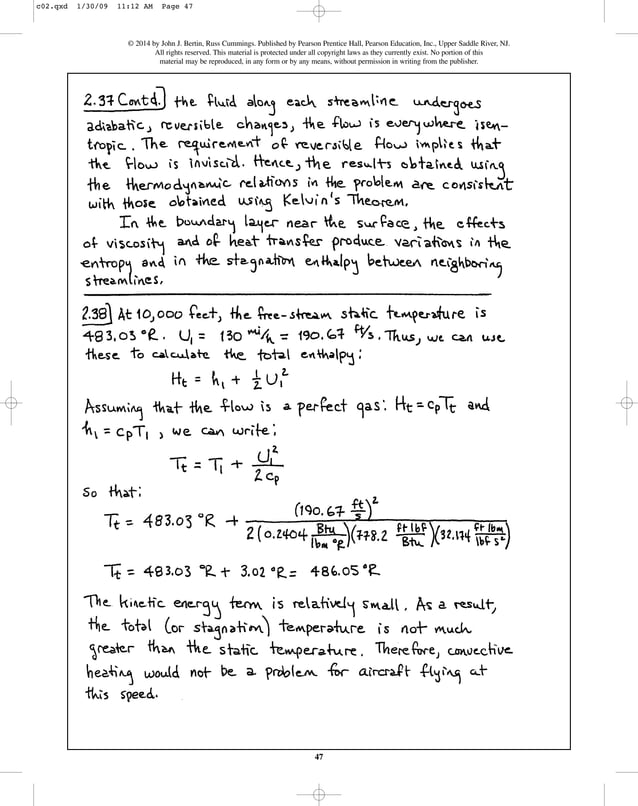 c02.qxd 1/30/09 11:12 AM Page 47
© 2014 by John J. Bertin, Russ Cummings. Published by Pearson Prentice Hall, Pearson Education, Inc., Upper Saddle River, NJ.
All rights reserved. This material is protected under all copyright laws as they currently exist. No portion of this
material may be reproduced, in any form or by any means, without permission in writing from the publisher.
2.37 Contd. the fluid along each streamline undergoes
adiabatic, reversible changes, the flow is everywhere isen-
tropic. The requirement of reversible flow implies that
the flow is inviscid. Hence, the results obtained using
the thermodynamic relations in the problem are consistent
with those obtained using Kelvin's Theorem.
In the boundary layer near the surface, the effects
of viscosity and of heat transfer produce variations in the
entropy and in the stagnation enthalpy between neighboring
streamlines.
2.38 At 10,000 feet, the free-stream static temperature is
483.03 °R. U₁ = 130 mi/h = 190.67 ft/s. Thus, we can use
these to calculate the total enthalpy:
Ht = h₁ + 1/2 U₁²
Assuming that the flow is a perfect gas: Ht = cpTt and
h₁ = cpT₁, we can write:
Tt = T₁ + U₁²/2cp
So that:
Tt = 483.03 °R + (190.67 ft/s)² / 2(0.2404 Btu/lbm °R)(778.2 ft lbf/Btu)(32.174 ft lbm/lbf s²)
Tt = 483.03 °R + 3.02 °R = 486.05 °R
The kinetic energy term is relatively small. As a result,
the total (or stagnation) temperature is not much
greater than the static temperature. Therefore, convective
heating would not be a problem for aircraft flying at
this speed.
47